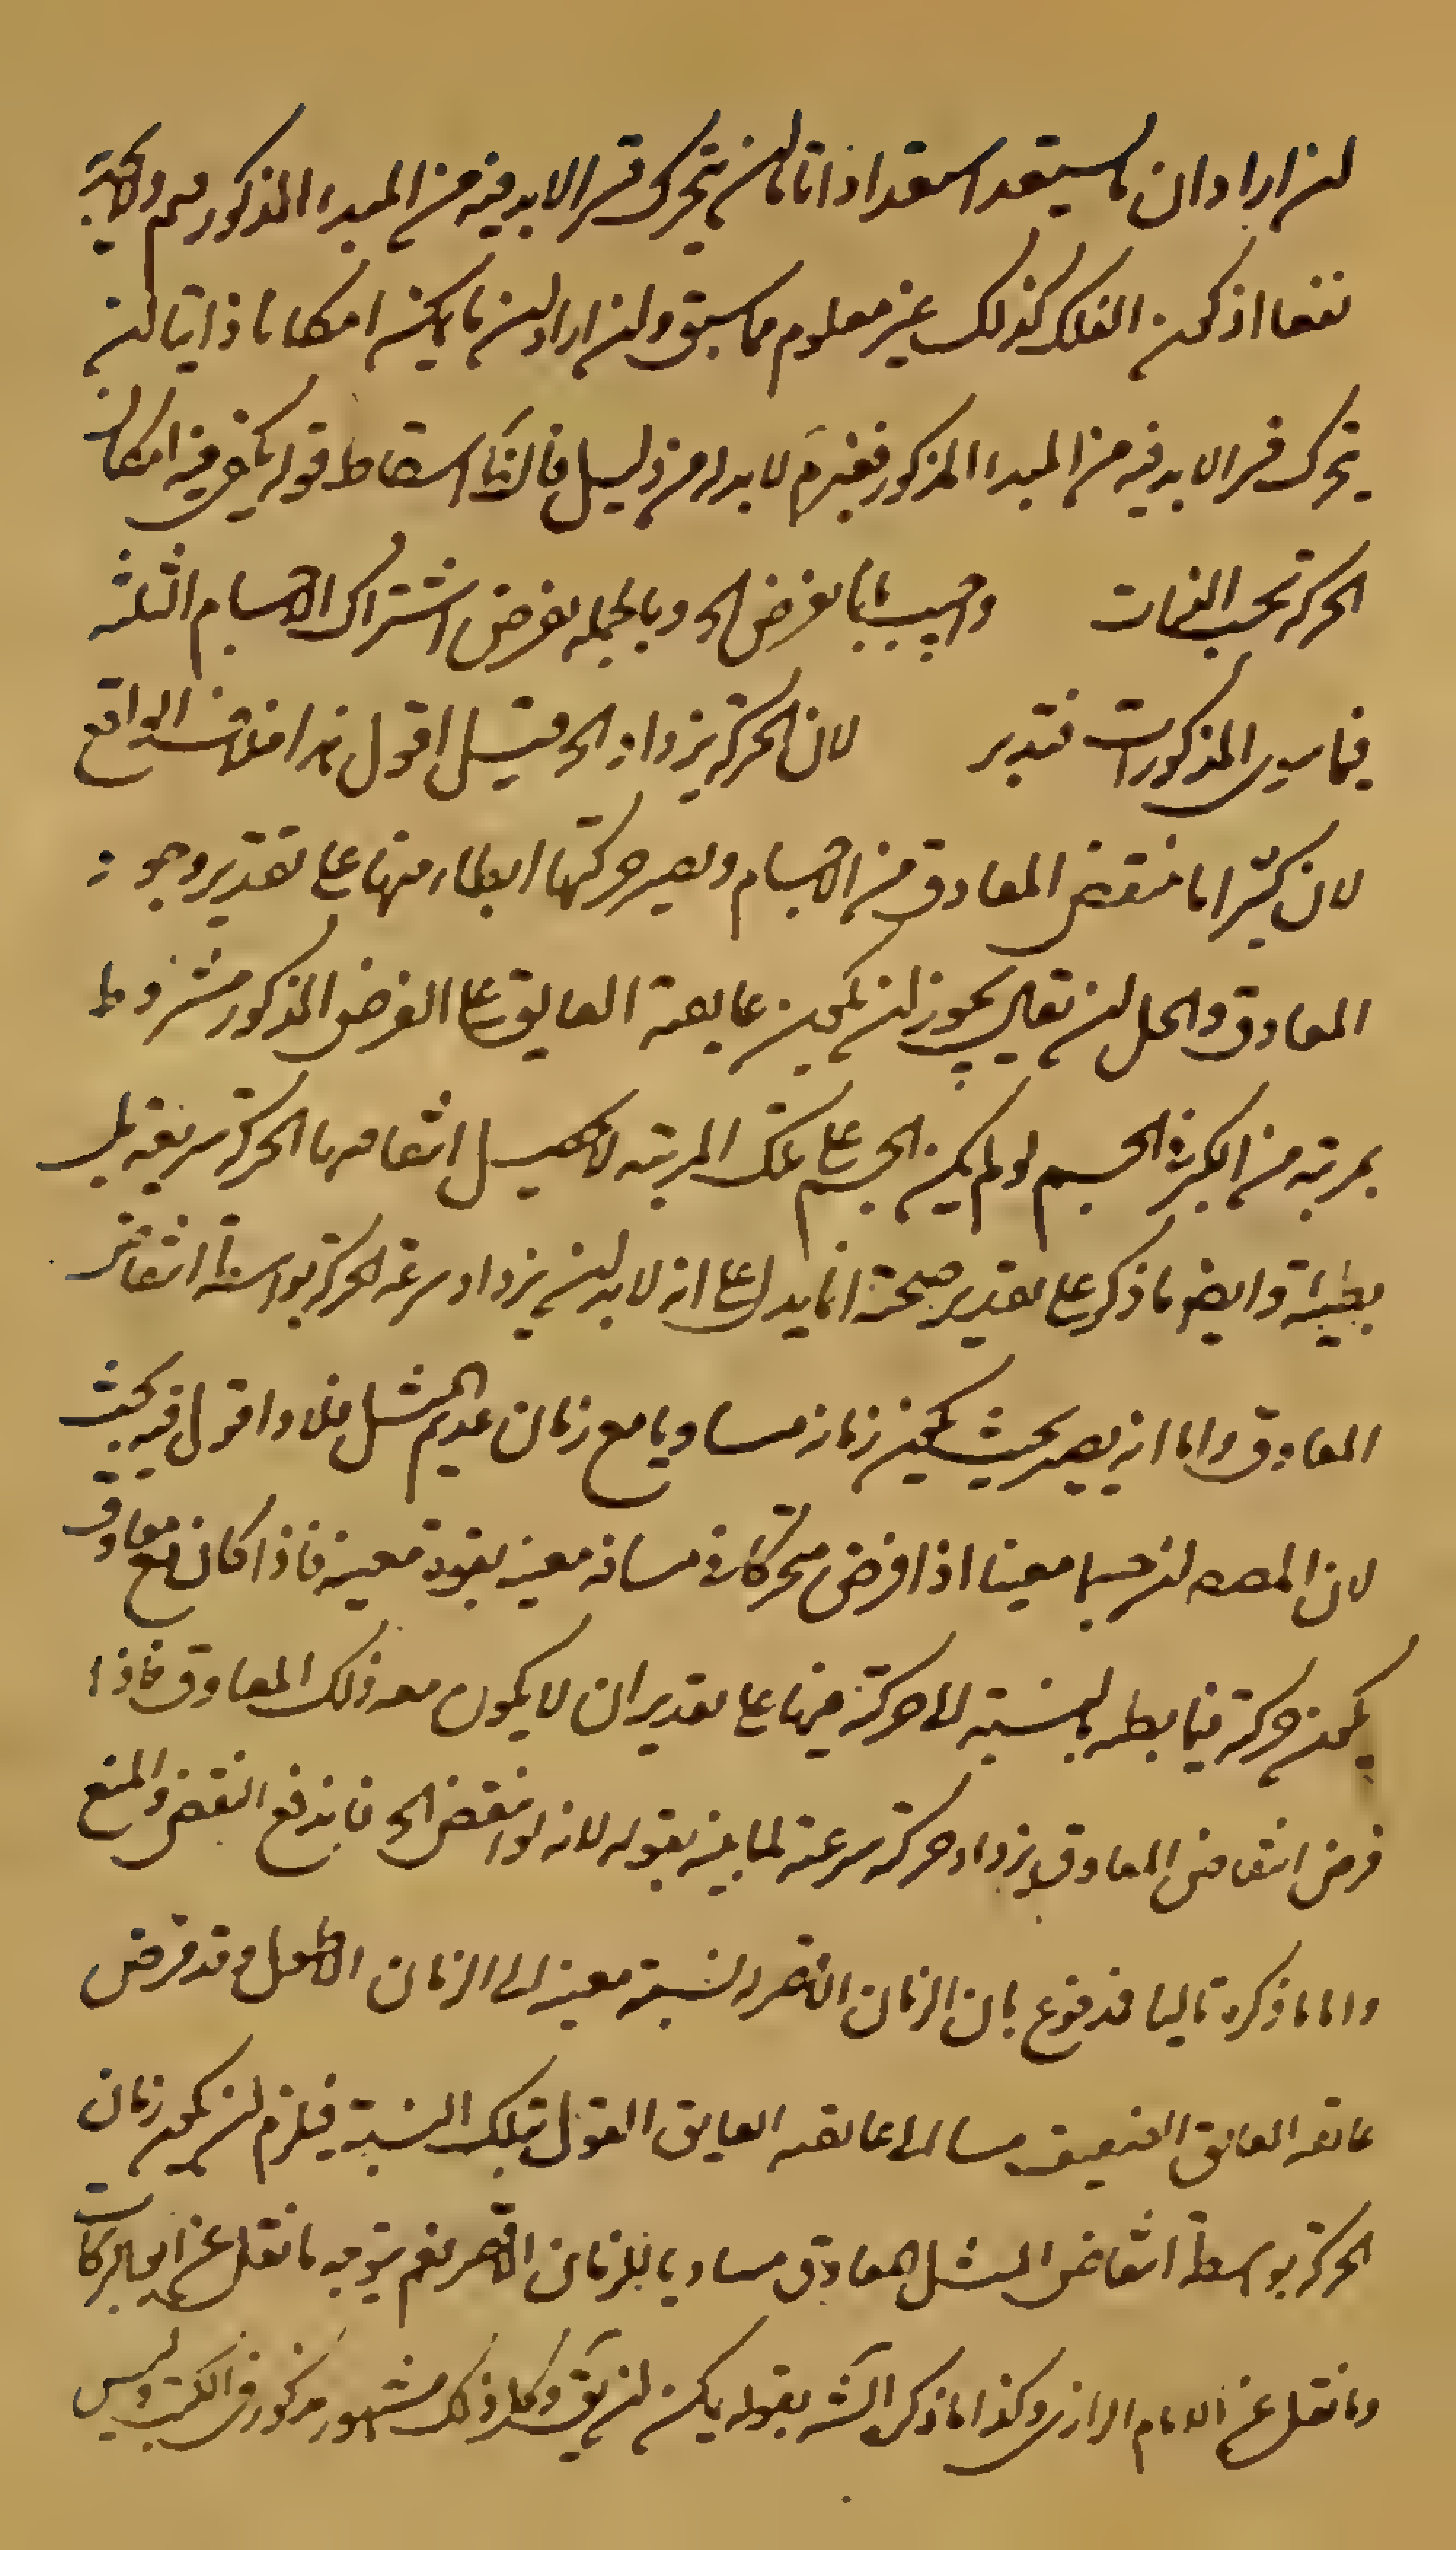 ان اراد ان ما يستعد استعدادا تاما لان يتحرك قسرا لا بد فيه من المبدء المذكور مم ولا يجديه
نفعا اذ كون الفلك كذلك غير معلوم مما سبق وان اراد ان ما يمكن امكانا ذاتيا ان
يتحرك قسرا لا بد فيه من المبدء المذكور فغير مم لا بد له من دليل فالكتاب اسقاط قوله يكفي فيه امكان
الحركة بحسب الذات واجيب بانا نفرض الخ وبالجملة نفرض اشتراك الاجسام الثلثة
فيما سوى المذكورات فتدبر لان الحركة يزداد الخ قيل اقول هذا خلاف الواقع
لان كثيرا ما ينتقض المعاوق من الاجسام ويصير حركتها ابطاء منها على تقدير وجود
المعاوق والحل ان يقال يجوز ان يكون عايقة العايق على الفرض المذكور مشروطا
بمرتبة من الكبر في الجسم لو لم يكن الجسم على تلك المرتبة لا يحصل انتقاصها الحركة سريعة بل
بطيئة وايضا ما ذكر على تقدير صحته انما يدل على انه لا بد ان يزداد سرعة الحركة بواسطة انتقاص
المعاوق واما انه يصير بحيث يكون زمانه مساويا مع زمان عديم الميل فلا واقول فيه بحث
لان المصه ان جسما معينا اذا فرض متحركا في مسافة معينة بقوة معينة فاذا كان مع معاوق
يكون حركته فيها بطيئة بالنسبة الى حركته فيها على تقدير ان لا يكون معه ذلك المعاوق فاذا
فرض انتقاض المعاوق يزداد حركته سرعة لما بينه بقوله لانه لو انتقض الخ فاندفع النقض والمنع
واما ما ذكره تاليا فمدفوع بان الزمان الاقصر له نسبة معينة الى الزمان الاطول وقد فرض
عايقة العايق الضعيف مساله الى عايقة العايق القوى بتلك النسبة فيلزم ان يكون زمان
الحركة بواسطة انتقاض الميل المعاوق مساويا للزمان الاقصر نعم يتوجه ما نقل عن ابى البركات
وما نقل عن الامام الرازى وكذا ما ذكره الش بقوله يمكن ان يق وكل ذلك مشهور مذكور في الكتب وليس